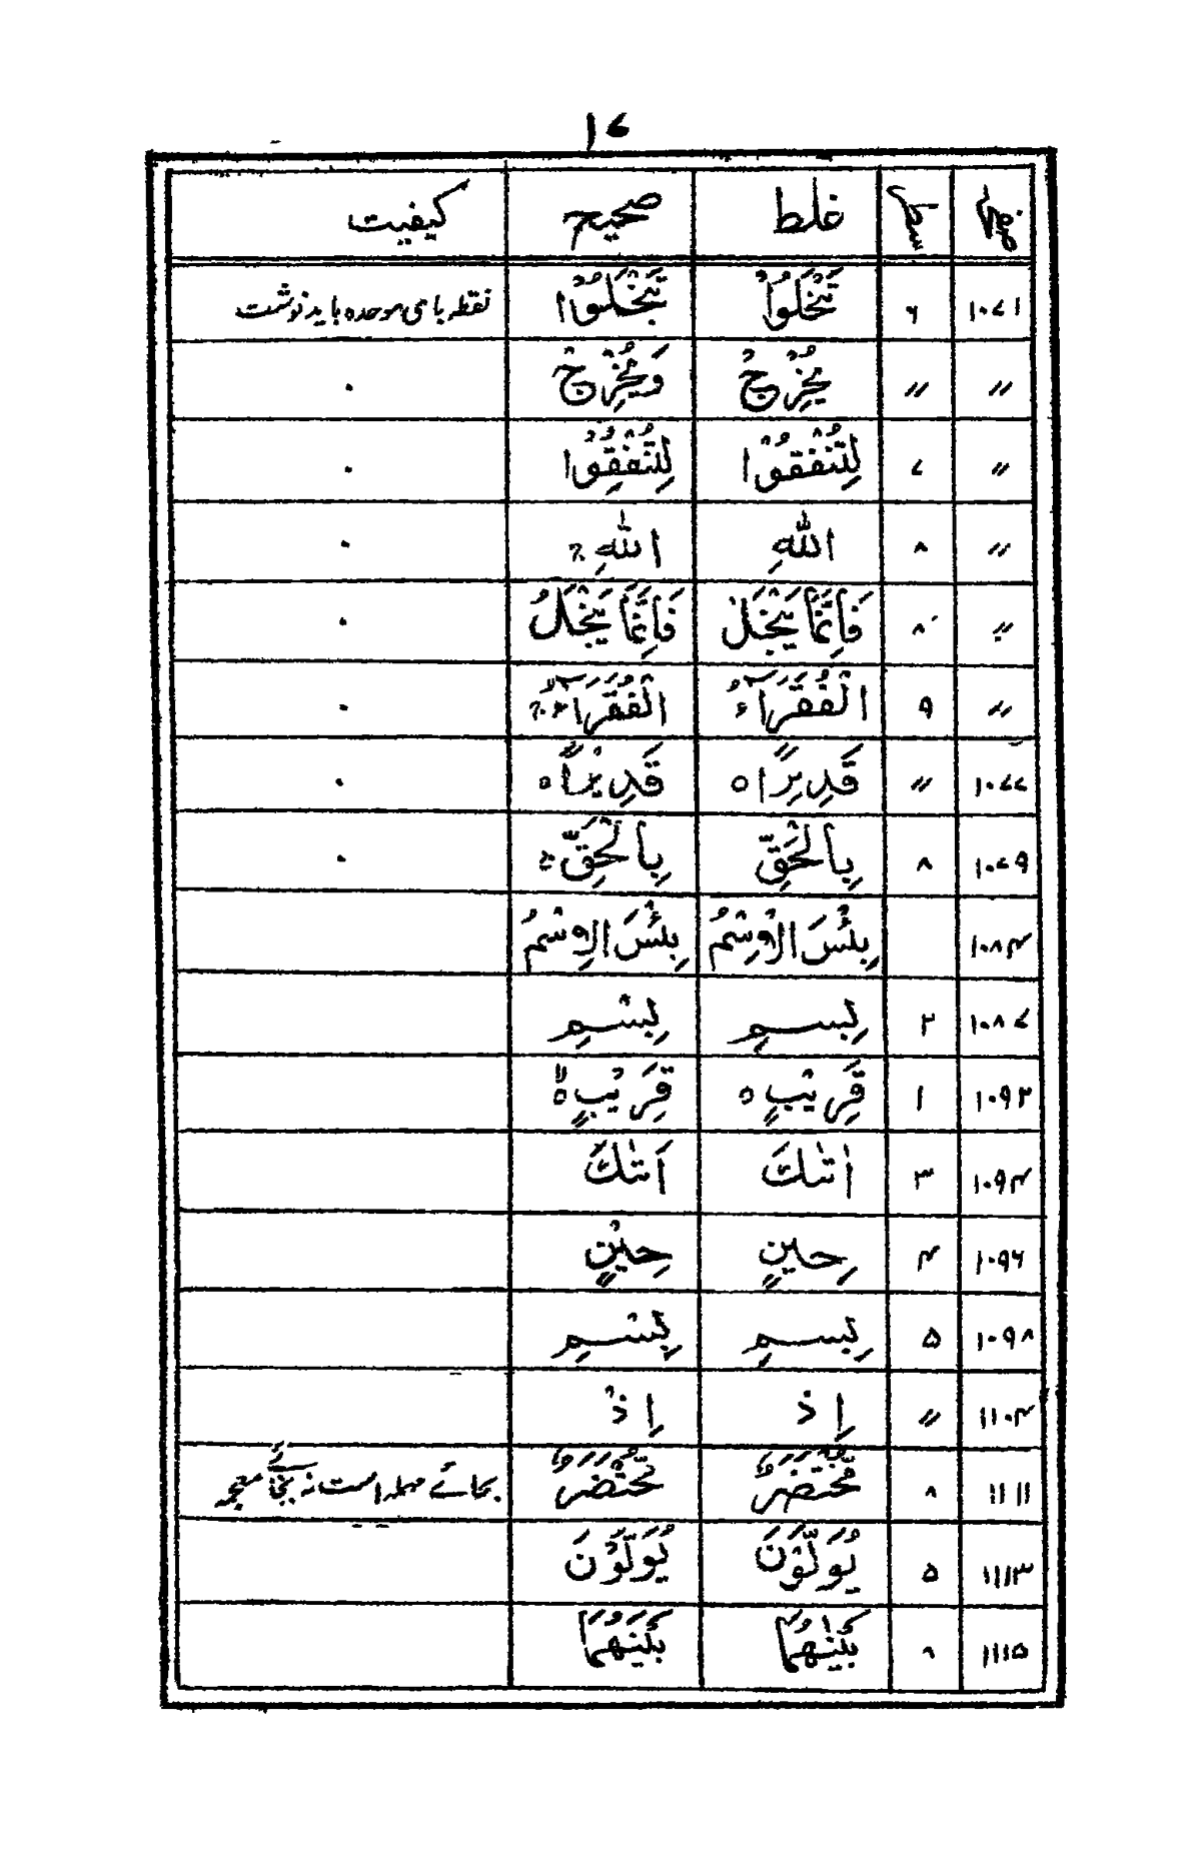 ۱۷
صفحہ سطر غلط صحیح کیفیت
۱۰۷۱ ۶ تَخْلَوُا تَبْخَلُوْا نقطہ بای موحدہ باید نوشت
〃 〃 يُخْرِجْ وَيُخْرِجْ ۰
〃 ۷ لِتُنْفِقُوْا لِتُنْفِقُوْا ۰
〃 ۸ اللّٰهِ اللّٰهِ ۰
〃 ۸ فَاِنَّمَا يَبْخَلُ فَاِنَّمَا يَبْخَلُ ۰
〃 ۹ الْفُقَرَآءُ الْفُقَرَآءُ ۰
۱۰۷۷ 〃 قَدِيرًا ه قَدِيْرًا ه ۰
۱۰۷۹ ۸ بِالْحَقِّ بِالْحَقِّ ۰
۱۰۸۴ بِئْسَ الْاِسْمُ بِئْسَ الِاسْمُ
۱۰۸۷ ۲ بِسمِ بِسْمِ
۱۰۹۲ ۱ قَرِيْبٍ ه قَرِيْبٍ ه
۱۰۹۴ ۳ اٰتٰىكَ اَتٰىكَ
۱۰۹۶ ۴ حِينٍ حِيْنٍ
۱۰۹۸ ۵ بِسمِ بِسْمِ
۱۱۰۴ 〃 اِذ اِذْ
۱۱۱۱ ۸ مُّخْتَضَرٌ مُّحْتَضَرٌ بحائے مہملہ است نہ بخائے معجمہ
۱۱۱۳ ۵ يُوَلُّوْنَ يُوَلُّوْنَ
۱۱۱۵ ۸ بَيْنَهُمَا بَيْنَهُمَا